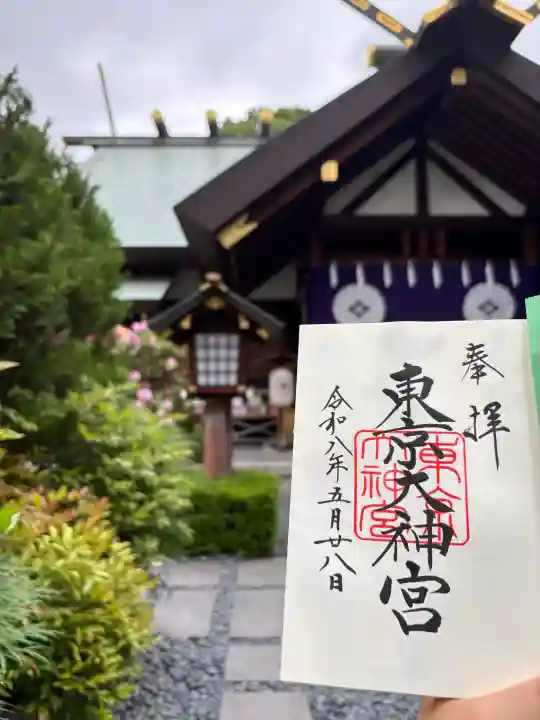 奉拝
東京大神宮
東京大神宮
令和八年五月廿八日